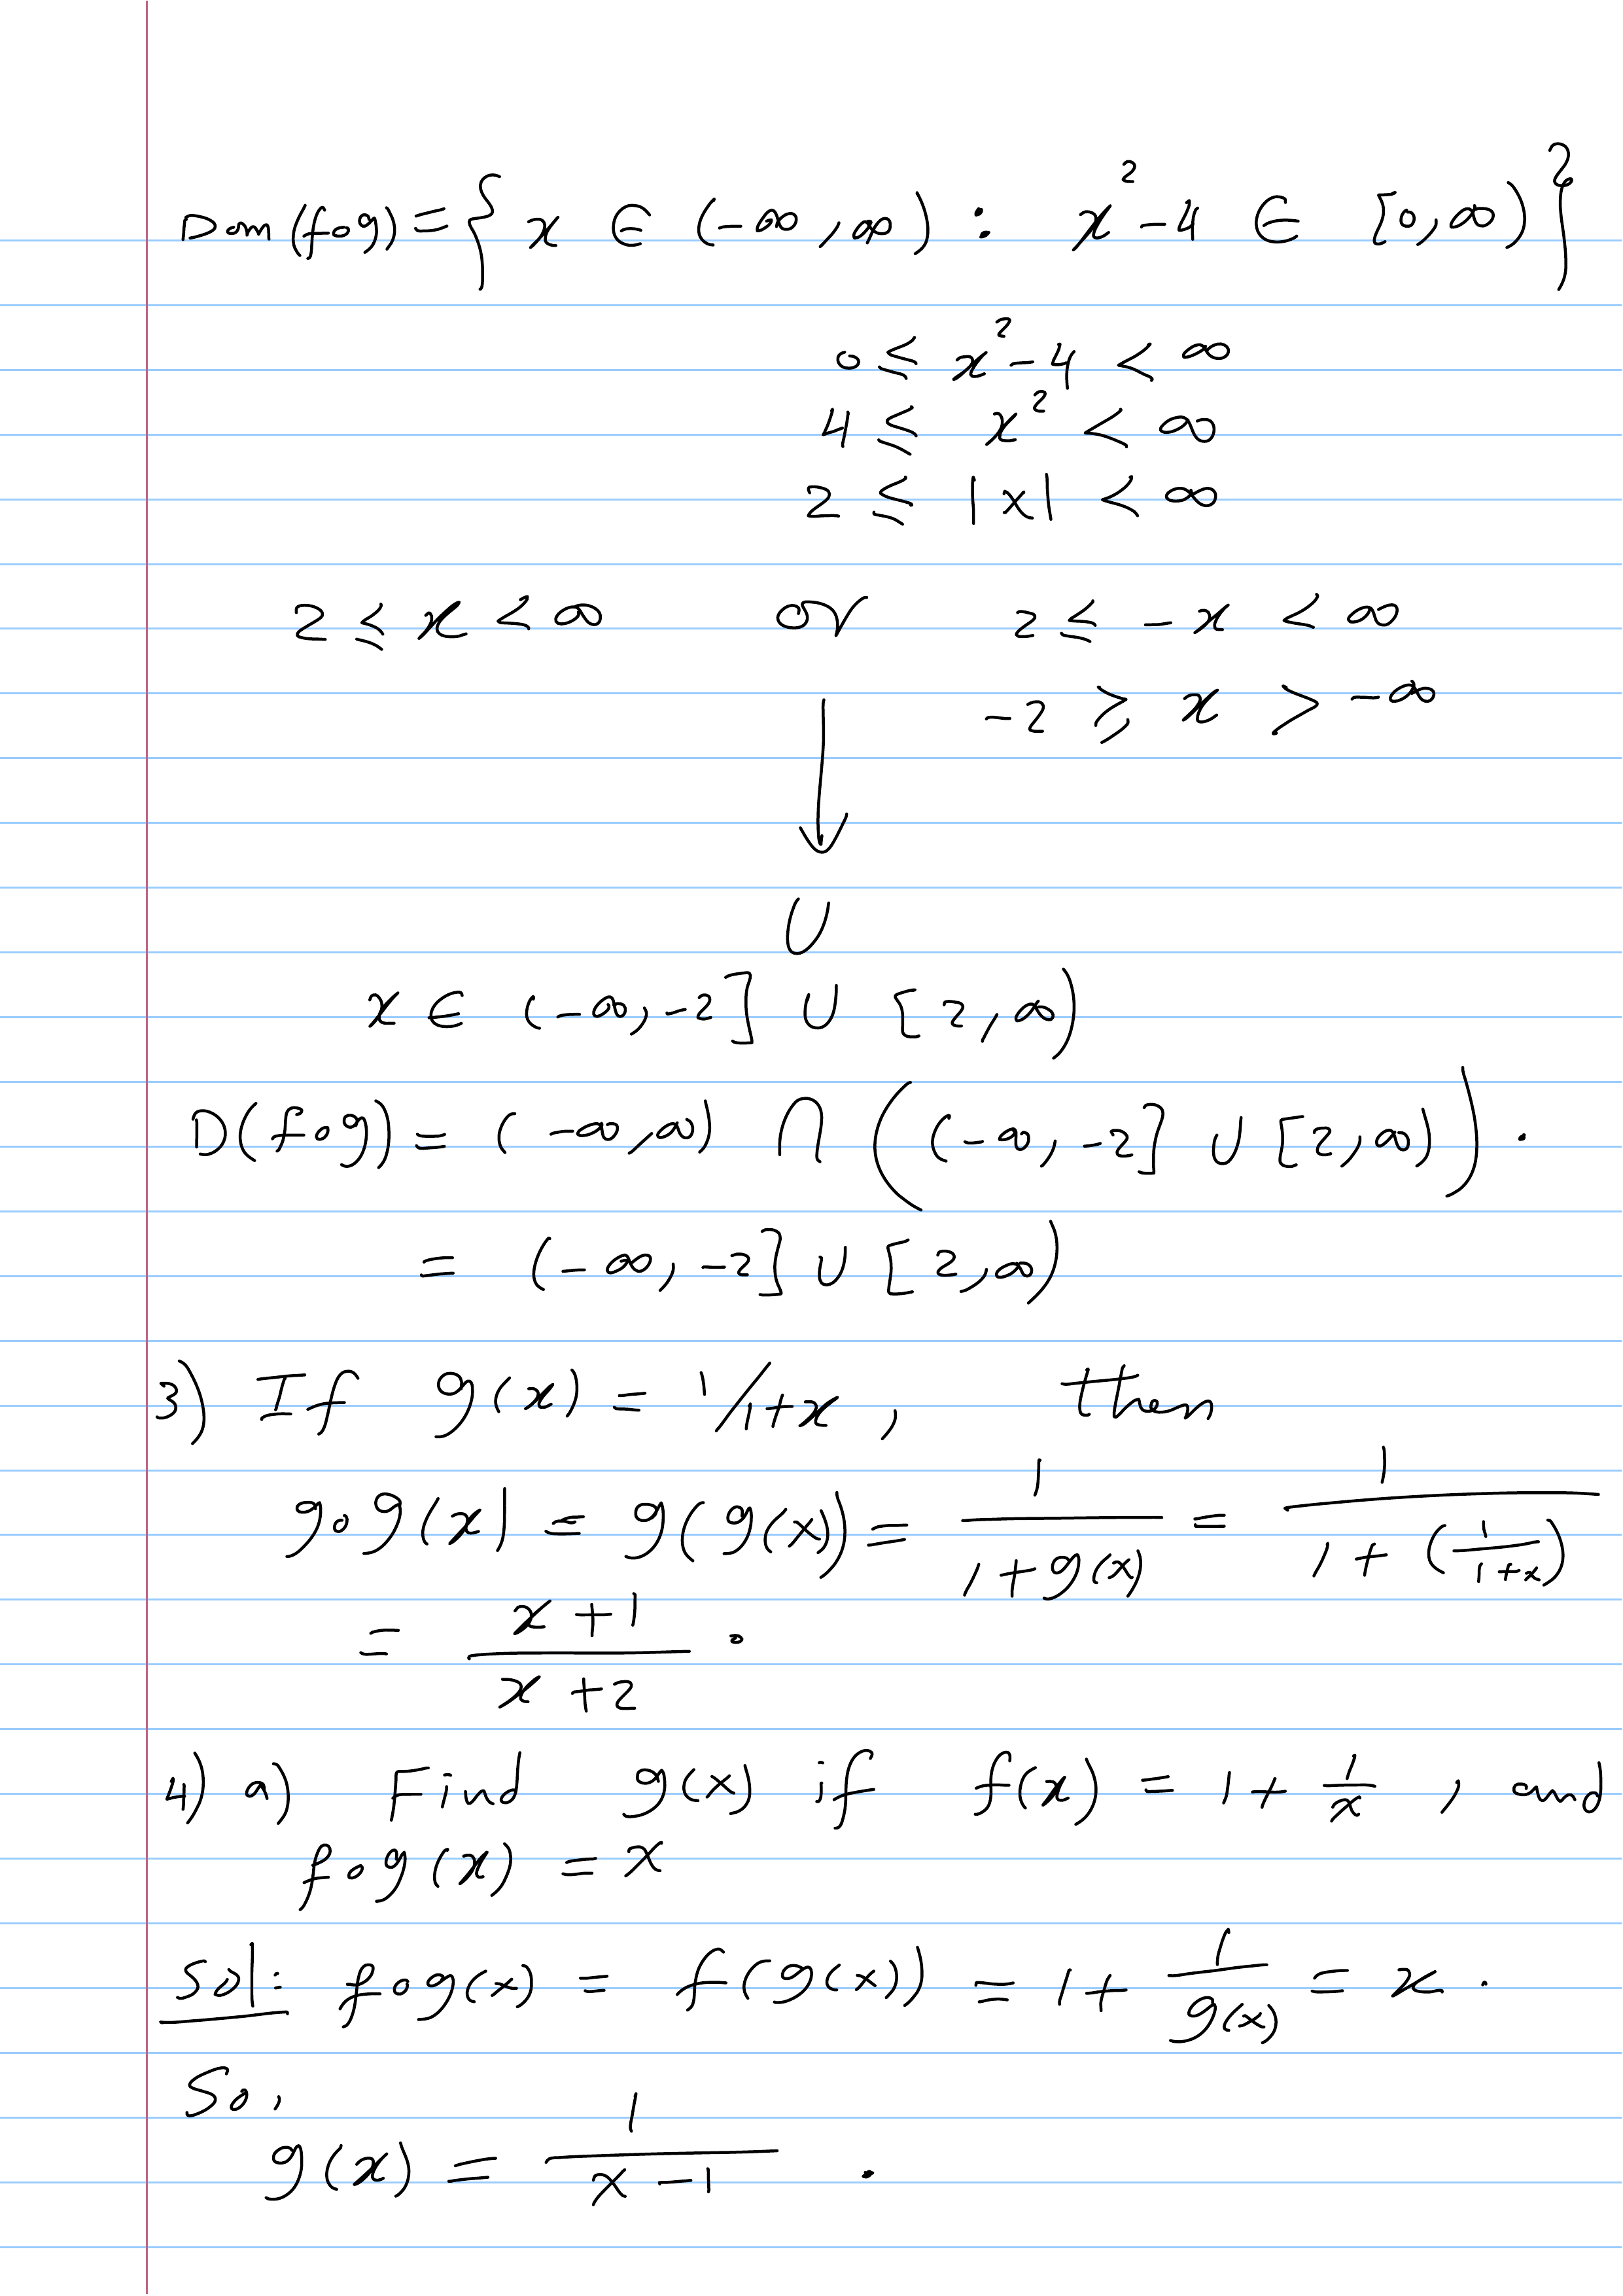 Dom(fog) = { x ∈ (-∞, ∞) : x² - 4 ∈ [0, ∞) }
0 ≤ x² - 4 < ∞
4 ≤ x² < ∞
2 ≤ |x| < ∞
2 ≤ x < ∞ or 2 ≤ -x < ∞
-2 ≥ x > -∞
↓
∪
x ∈ (-∞, -2] ∪ [2, ∞)
D(fog) = (-∞, ∞) ∩ ((-∞, -2] ∪ [2, ∞)).
= (-∞, -2] ∪ [2, ∞)
3) If g(x) = 1/1+x, then
gog(x) = g(g(x)) = 1/(1+g(x)) = 1/(1+(1/(1+x)))
= (x+1)/(x+2).
4) a) Find g(x) if f(x) = 1 + 1/x, and
fog(x) = x
Sol: fog(x) = f(g(x)) = 1 + 1/g(x) = x.
So,
g(x) = 1/(x-1).